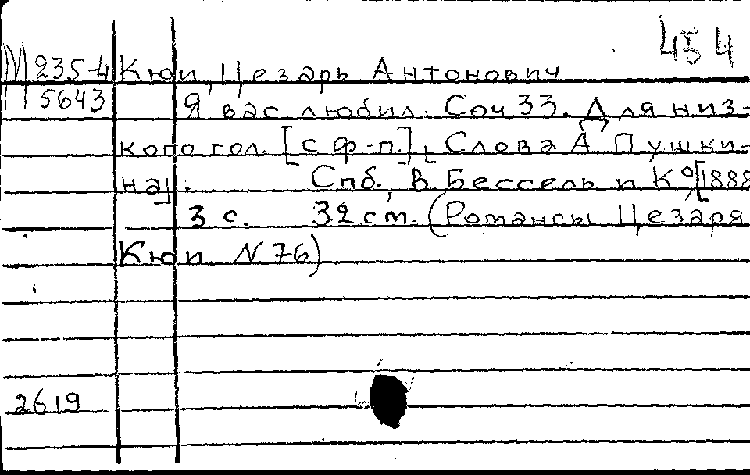 454
М 235-4 Кюи, Цезарь Антонович
5643 Я вас любил. Соч 33. Для низ-
кого гол. [с ф-п.], [Слова А Пушки-
на]. Спб., В. Бессель и К° [1888
3 с. 32 cm. (Романсы Цезаря
Кюи N 76)
2619